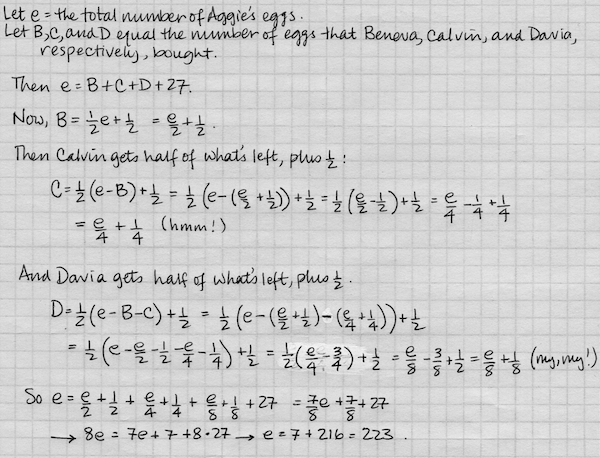 Let e = the total number of Aggie's eggs.
Let B, C, and D equal the number of eggs that Beneva, Calvin, and Davia,
respectively, bought.
Then e = B + C + D + 27.
Now, B = 1/2 e + 1/2 = e/2 + 1/2.
Then Calvin gets half of what's left, plus 1/2:
C = 1/2 (e - B) + 1/2 = 1/2 (e - (e/2 + 1/2)) + 1/2 = 1/2 (e/2 - 1/2) + 1/2 = e/4 - 1/4 + 1/4
= e/4 + 1/4 (hmm!)
And Davia gets half of what's left, plus 1/2.
D = 1/2 (e - B - C) + 1/2 = 1/2 (e - (e/2 + 1/2) - (e/4 + 1/4)) + 1/2
= 1/2 (e - e/2 - 1/2 - e/4 - 1/4) + 1/2 = 1/2 (e/4 - 3/4) + 1/2 = e/8 - 3/8 + 1/2 = e/8 + 1/8 (my, my!)
So e = e/2 + 1/2 + e/4 + 1/4 + e/8 + 1/8 + 27 = 7/8 e + 7/8 + 27
→ 8e = 7e + 7 + 8·27 → e = 7 + 216 = 223.